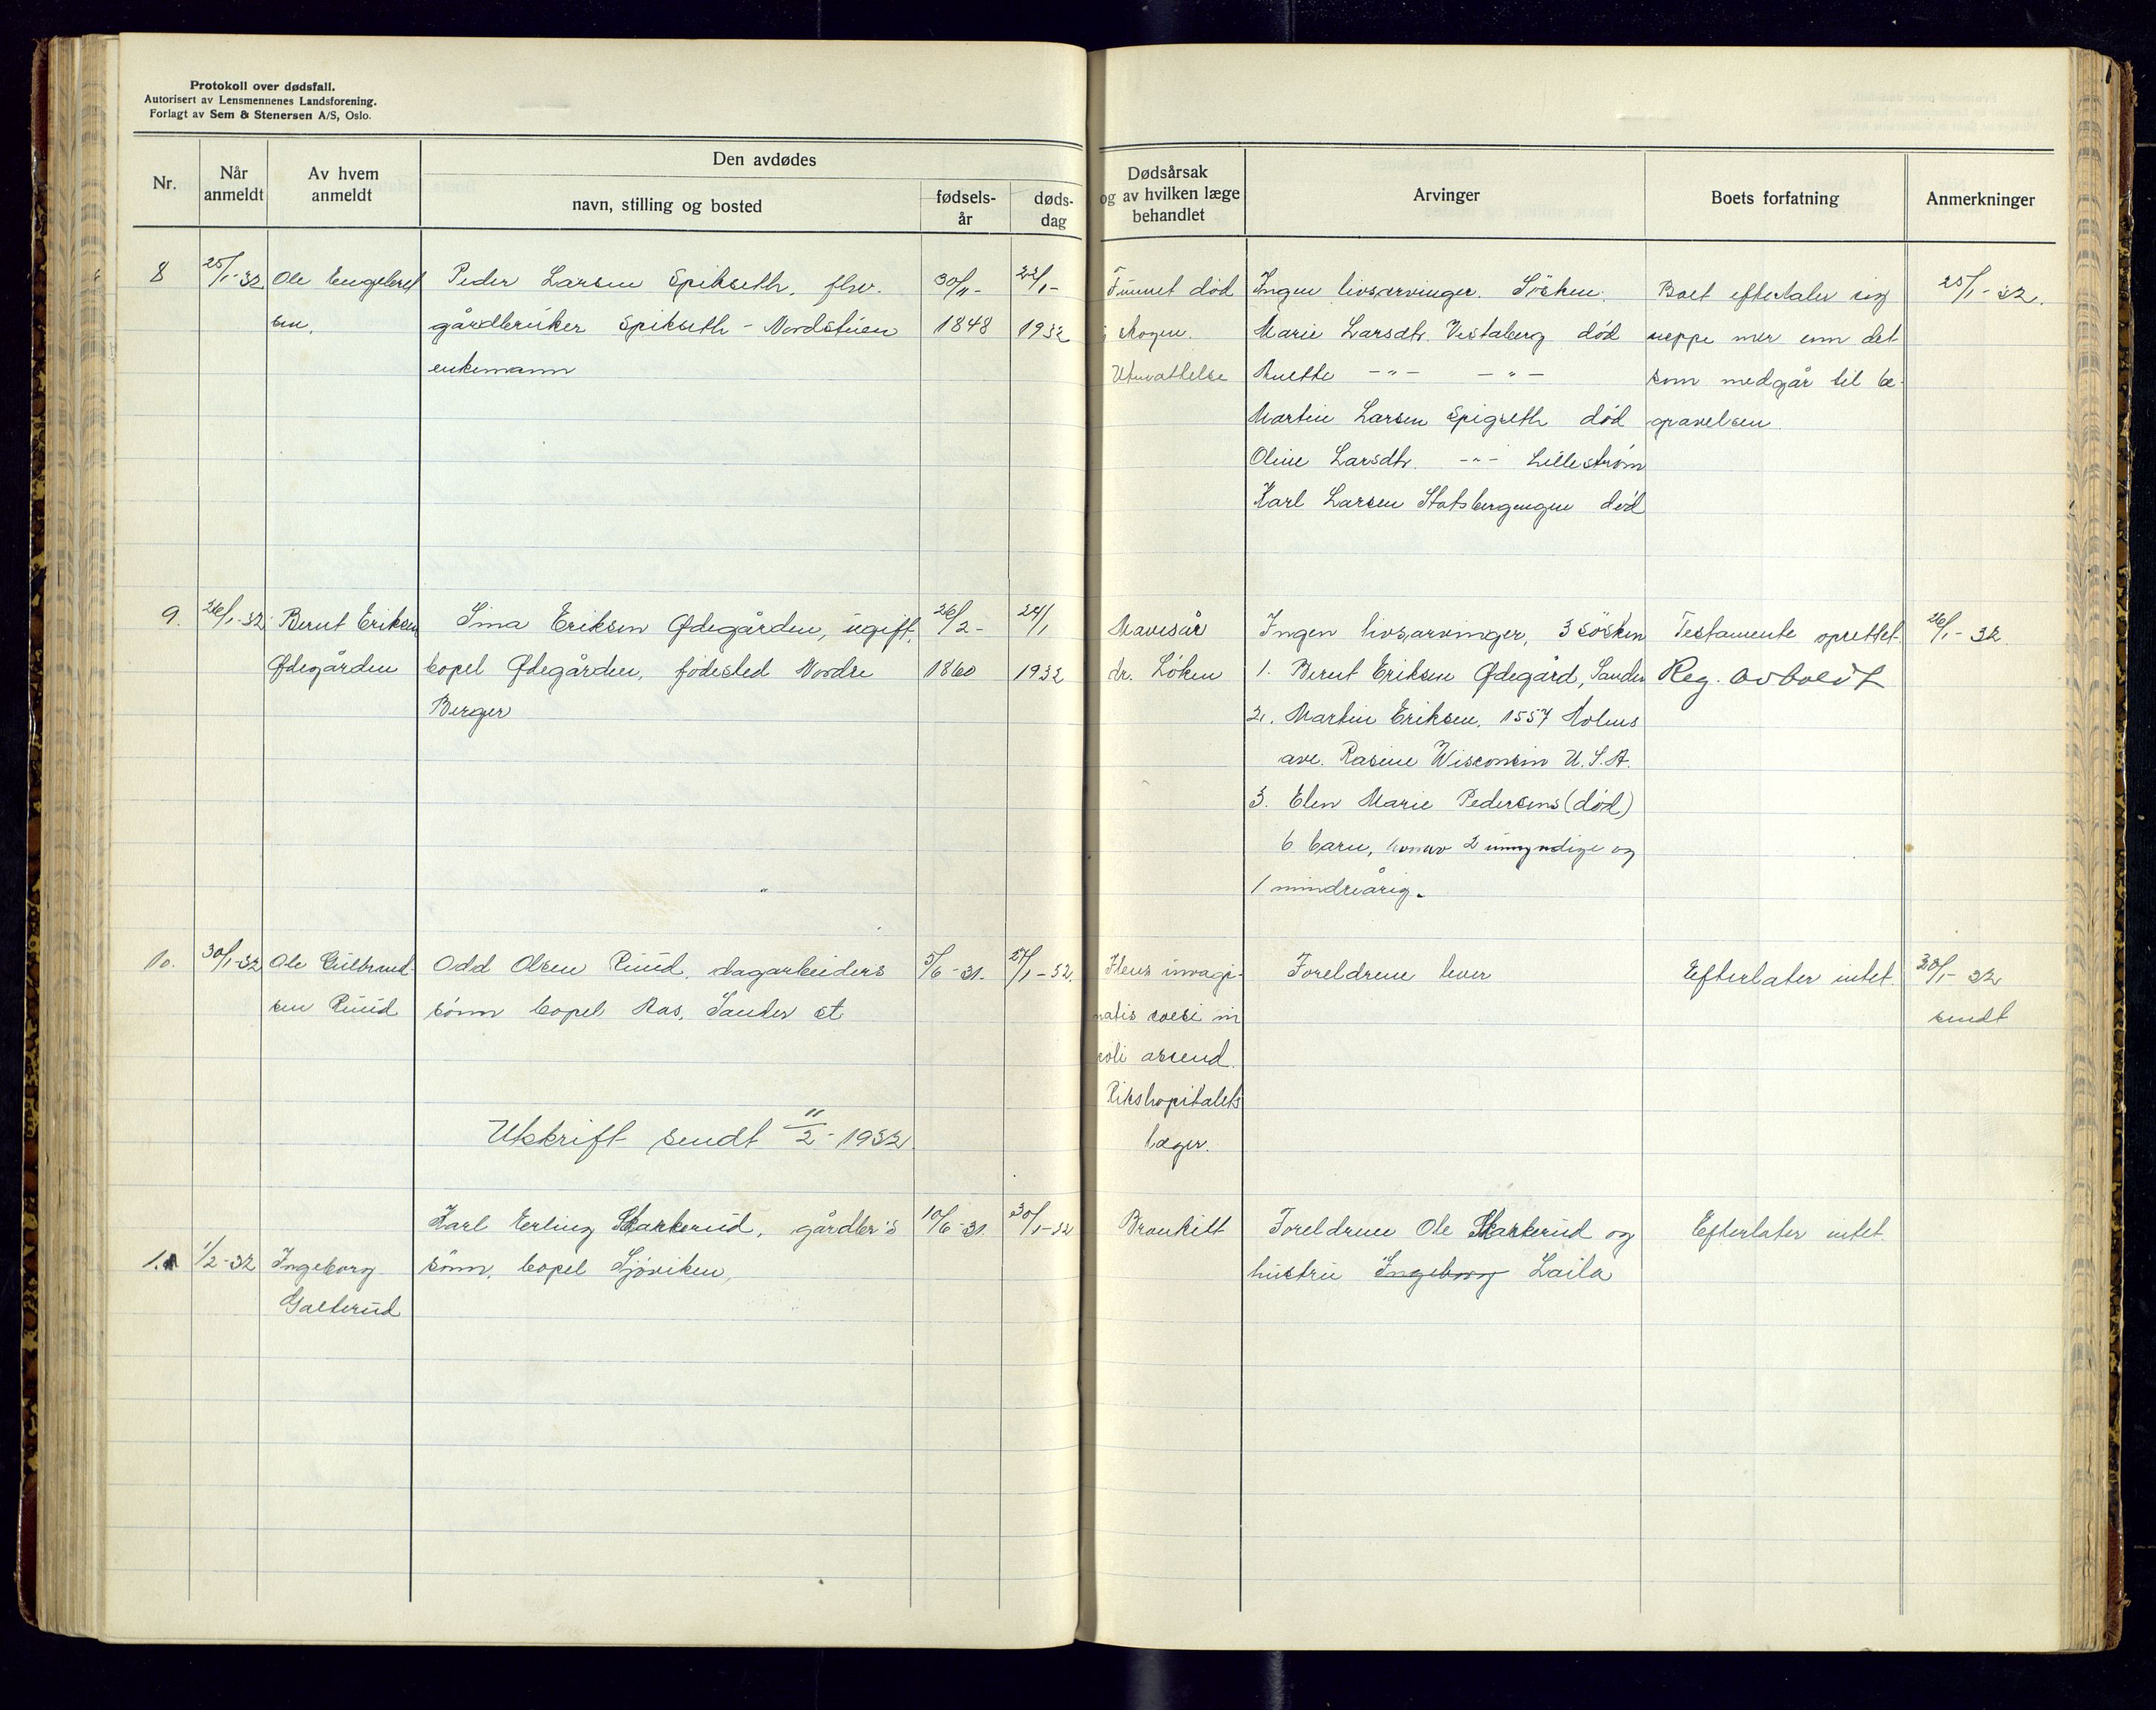 Protokoll over dødsfall.
Autorisert av Lensmennenes Landsforening.
Forlagt av Sem & Stenersen A/S, Oslo.
Nr.
Når anmeldt
Av hvem anmeldt
Den avdødes
navn, stilling og bosted
fødsels-år
døds-dag
Dødsårsak og av hvilken læge behandlet
Arvinger
Boets forfatning
Anmerkninger
8
25/1-32
Ole Engebret
sen.
Peder Larsen Spikseth, fhv.
gårdbruker Spikseth - Nordstuen
enkemann
30/11-
1848
22/1-
1932
Funnet død
i skogen.
Utmattelse
Ingen livsarvinger. Søsken:
Marie Larsdtr. Vestaberg død
Anette -"- -"-
Martin Larsen Spigseth død
Oline Larsdtr. -"- Lillestrøm
Karl Larsen Statsbergengen død
Boet efterlater sig
neppe mer enn det
som medgår til be-
gravelsen.
25/1-32.
9.
26/1-32
Bernt Eriksen
Ødegården
Sina Eriksen Ødegården, ugift,
bopel Ødegården, fødested Nordre
Berger
26/2-
1860
24/1
1932
Mavesår
dr. Løken
Ingen livsarvinger, 3 søsken
1. Bernt Eriksen Ødegård, Sander
2. Martin Eriksen, 1557 Holms
ave. Rasine Wisconsin U.S.A.
3. Elen Marie Pedersens (død)
6 barn, hvorav 2 umyndige og
1 mindreårig.
Testamente oprettet.
Reg. avholdt
26/1-32.
10.
30/1-32
Ole Gulbrand-
sen Ruud
Odd Olsen Ruud, dagarbeiders
sønn bopel Aas, Sander st
5/6-31.
27/1-32.
Ileus invagi-
natis coeci in
coli ascend.
Rikshopitalets
læger.
Foreldrene lever
Efterlater intet.
30/1-32
sendt
Utskrift sendt 11/2-1932.
11
1/2-32
Ingeborg
Galterud
Karl Erling Skarkerud, gårdbr's
sønn, bopel Sjøviken,
10/6-31.
30/1-32
Bronkitt
Foreldrene Ole Skarkerud og
hustru Ingeborg Laila
Efterlater intet.